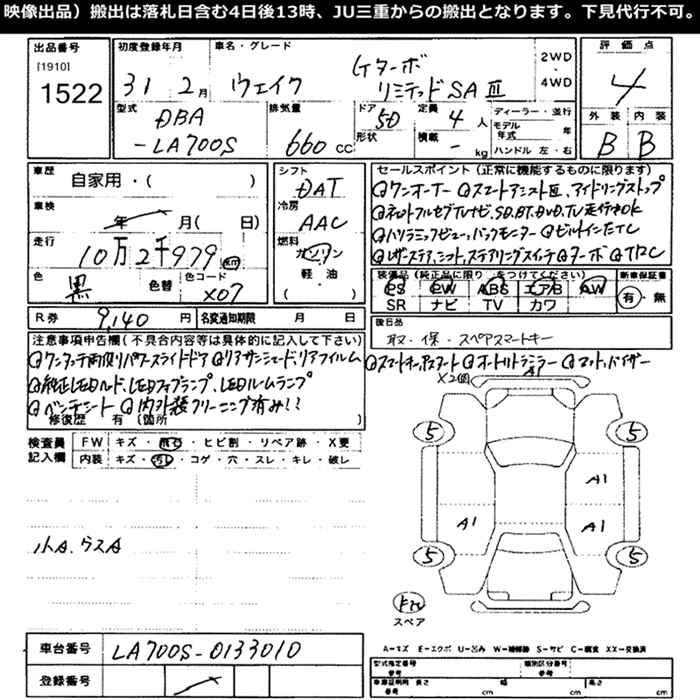 映像出品）搬出は落札日含む4日後13時、JU三重からの搬出となります。下見代行不可。
出品番号
[1910]
1522
初度登録年月
31 2月
車名・グレード
ウェイク
Gターボ
リミテッドSAⅢ
2WD
・
4WD
評価点
4
外装 内装
B B
型式
DBA
-LA700S
排気量
660 CC
ドア
形状
5D
定員
4 人
積載
- kg
ディーラー・並行
モデル
年式 年
ハンドル 左・右
車歴
自家用・( )
車検
年 月( 日)
走行
10万2千979 km
色
黒
色替
色コード
X07
シフト
DAT
冷房
AAC
燃料
ガソリン
軽・油
( )
セールスポイント（正常に機能するものに限ります）
ワンオーナー スマートアシストⅢ、アイドリングストップ
ネットフルセグTVナビ、SD.BT.DVD.TV走行中OK
パノラミックビュー、バックモニター ビルトインETC
レザーステア、シフト、ステアリングスイッチ ターボ TRC
装備品（純正品に限り○をつけてください）
PS PW ABS エアB AW
SR ナビ TV カワ
新車保証書
有・無
R券
9,140 円
名変通知期限 月 日
後日品
取・保・スペアスマートキー
注意事項申告欄（不具合内容等は具体的に記入して下さい）
ワンタッチ両側パワースライドドア リアサンシェード、リアフィルム
スマートキー、Pスタート オートリトラミラー マット、バイザー
純正LEDヘッド、LEDフォグランプ、LEDルームランプ
ベンチシート 内外装クリーニング済み!!
修復歴 有（箇所 ）
検査員
記入欄
FW キズ・飛石・ヒビ割・リペア跡・X要
内装 キズ・汚レ・コゲ・穴・スレ・キレ・破レ
小A.ウスA
X2個
A1
5 5
A1
A1 A1
5 5
スペア
車台番号 LA700S-0133010
登録番号
A－キズ E－エクボ U－凹み W－補修跡 S－サビ C－腐食 XX－交換済
型式指定番号
参考
類別区分番号
参考
車庫証明用 長さ
参考 cm
幅
cm
高さ
cm